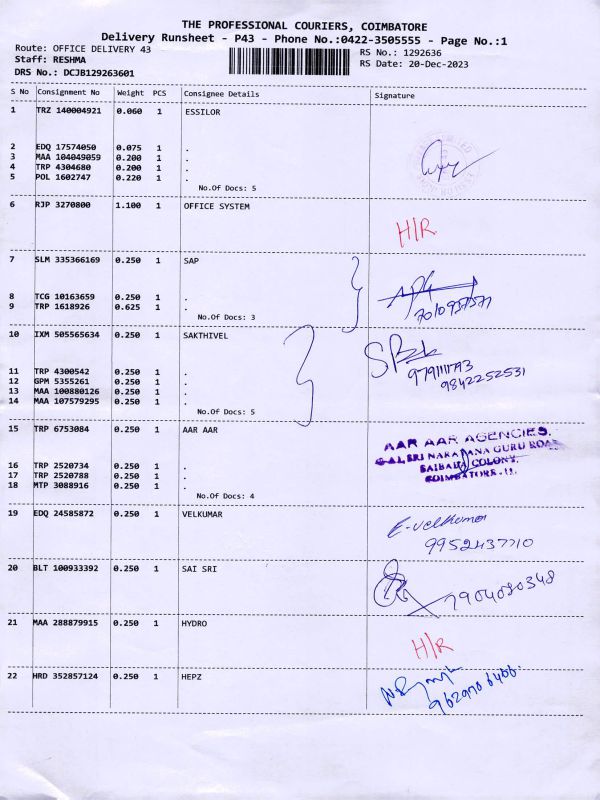 THE PROFESSIONAL COURIERS, COIMBATORE
Delivery Runsheet - P43 - Phone No.:0422-3505555 - Page No.:1
Route: OFFICE DELIVERY 43 RS No.: 1292636
Staff: RESHMA RS Date: 20-Dec-2023
DRS No.: DCJB129263601
S No Consignment No Weight PCS Consignee Details Signature
1 TRZ 140004921 0.060 1 ESSILOR
2 EDQ 17574050 0.075 1 .
3 MAA 104049059 0.200 1 .
4 TRP 4304680 0.200 1 .
5 POL 1602747 0.220 1 .
No.Of Docs: 5
6 RJP 3270800 1.100 1 OFFICE SYSTEM
H/R
7 SLM 335366169 0.250 1 SAP
8 TCG 10163659 0.250 1 .
9 TRP 1618926 0.625 1 .
7010937571
No.Of Docs: 3
10 IXM 505565634 0.250 1 SAKTHIVEL
11 TRP 4300542 0.250 1 .
12 GPM 5355261 0.250 1 .
9842252531
13 MAA 100880126 0.250 1 .
14 MAA 107579295 0.250 1 .
No.Of Docs: 5
15 TRP 6753084 0.250 1 AAR AAR
AAR AAR AGENCIES.
GURU ROAD
16 TRP 2520734 0.250 1 .
SAIBABA COLONY,
17 TRP 2520788 0.250 1 .
COIMBATORE-11.
18 MTP 3088916 0.250 1 .
No.Of Docs: 4
19 EDQ 24585872 0.250 1 VELKUMAR
E-velkumar
9952437710
20 BLT 100933392 0.250 1 SAI SRI
7904080348
21 MAA 288879915 0.250 1 HYDRO
H/R
22 HRD 352857124 0.250 1 HEPZ